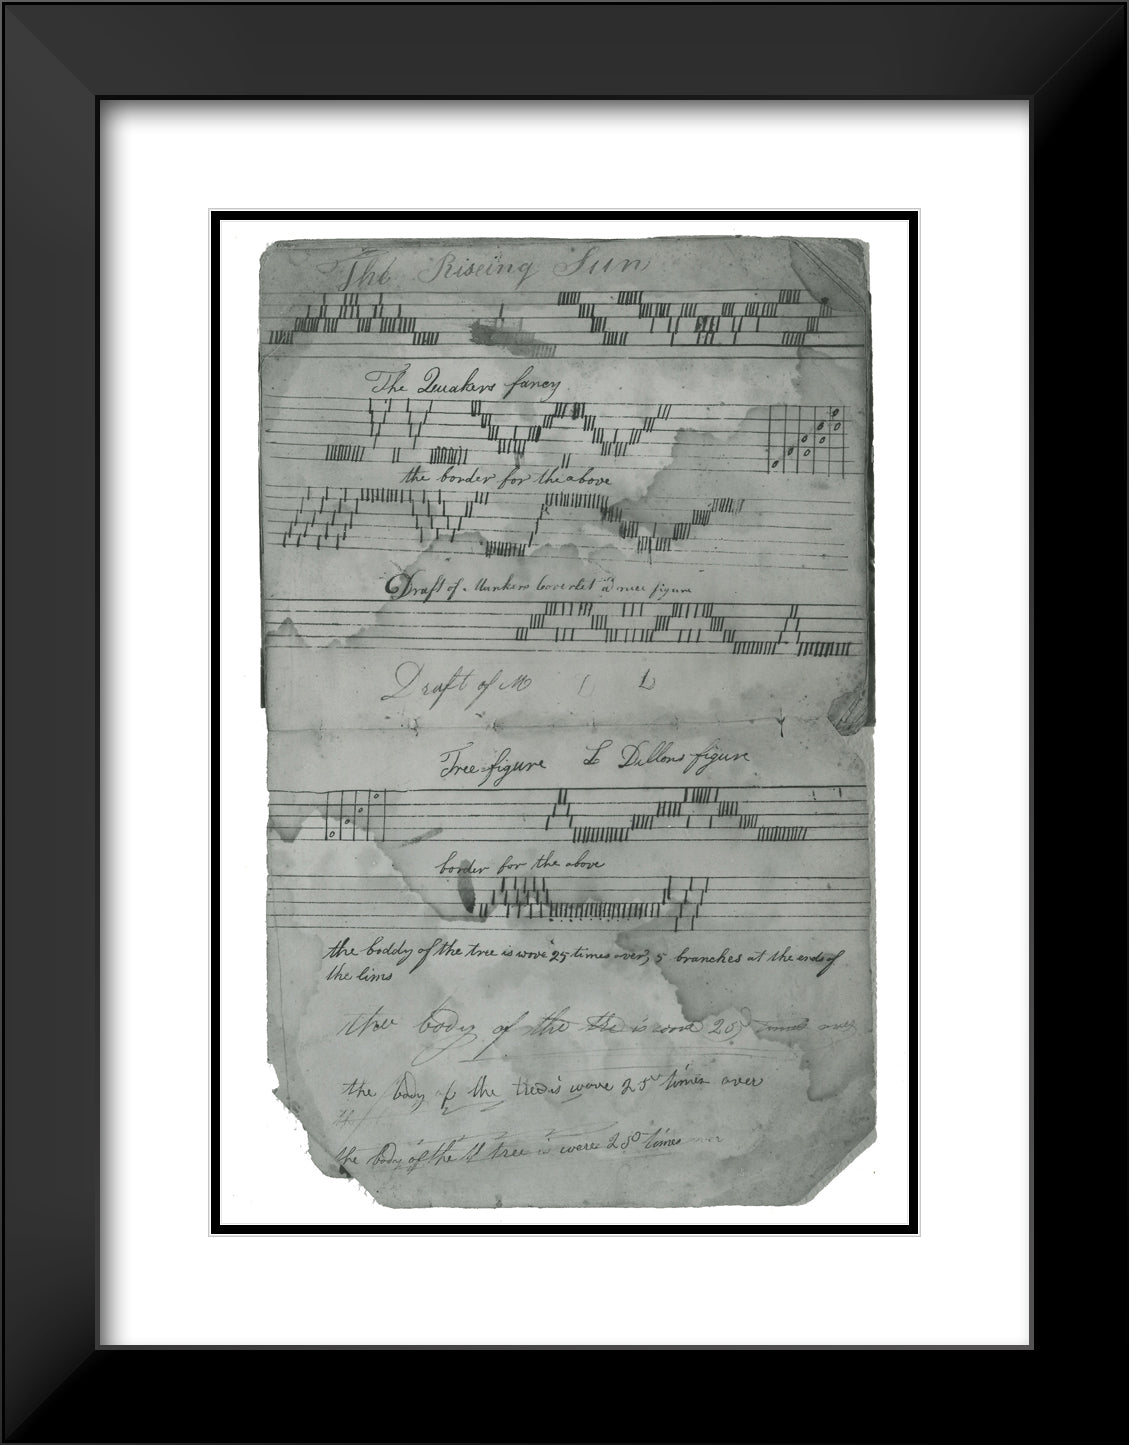 The Riseing Sun
The Quakers fancy
the border for the above
Draft of a coverlet a nice figure
Draft of M L L
Tree figure L Dillons figure
border for the above
the boddy of the tree is wove 25 times over, 5 branches at the ends of
the lims
the body of the tre is wove 25 times over
the body of the tree is wove 25 times over
the body of the tree is wove 25 times over